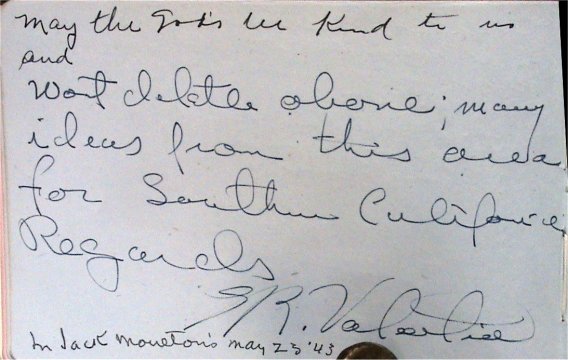 May the Gods be Kind to us
and
Wont delete above; many
ideas from this area
for Southern California
Regards
E R. Valentine
In Jack Moreton's May 25 '43